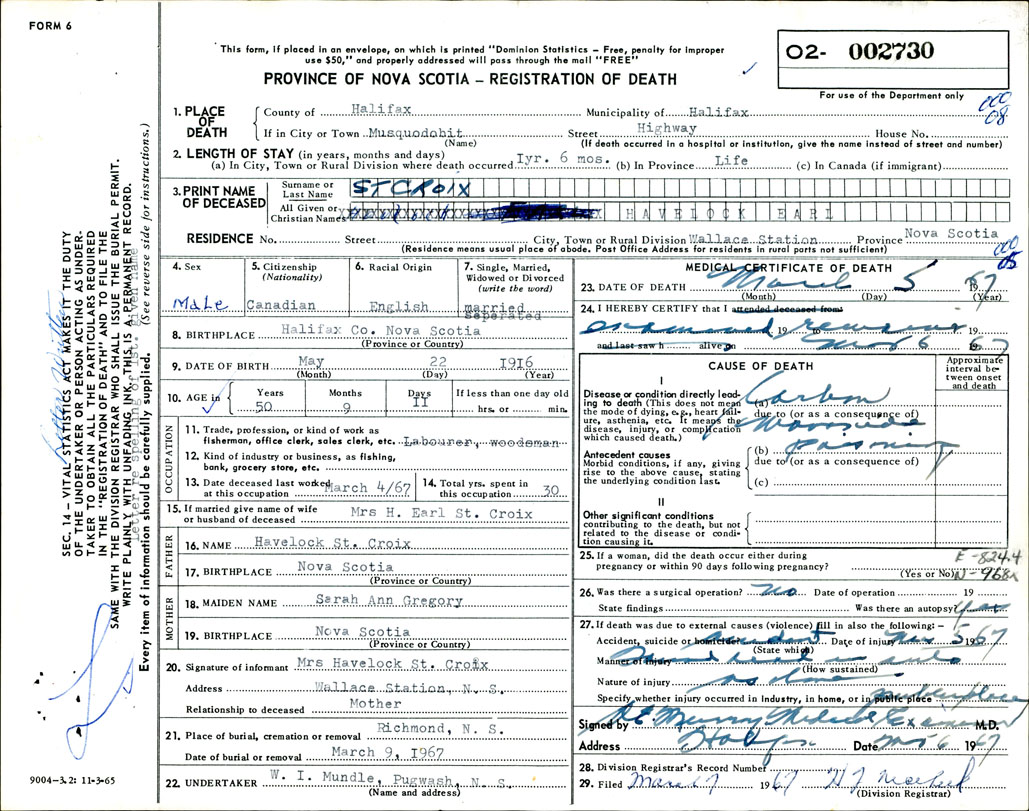 FORM 6
This form, if placed in an envelope, on which is printed "Dominion Statistics – Free, penalty for improper
use $50," and properly addressed will pass through the mail "FREE"
PROVINCE OF NOVA SCOTIA – REGISTRATION OF DEATH
02- 002730
For use of the Department only
000
08
1. PLACE OF DEATH
County of Halifax Municipality of Halifax
If in City or Town Musquodobit Street Highway House No.
(Name) (If death occurred in a hospital or institution, give the name instead of street and number)
2. LENGTH OF STAY (in years, months and days)
(a) In City, Town or Rural Division where death occurred Iyr. 6 mos. (b) In Province Life (c) In Canada (if immigrant)
3. PRINT NAME OF DECEASED
Surname or Last Name ST CROIX
All Given or Christian Names HAVELOCK EARL
RESIDENCE No. Street City, Town or Rural Division Wallace Station Province Nova Scotia
(Residence means usual place of abode. Post Office Address for residents in rural parts not sufficient)
000
05
4. Sex
Male
5. Citizenship
(Nationality)
Canadian
6. Racial Origin
English
7. Single, Married,
Widowed or Divorced
(write the word)
married
Seperated
8. BIRTHPLACE Halifax Co. Nova Scotia
(Province or Country)
9. DATE OF BIRTH May 22 1916
(Month) (Day) (Year)
10. AGE in
Years Months Days If less than one day old
50 9 11 hrs. or min.
OCCUPATION
11. Trade, profession, or kind of work as
fisherman, office clerk, sales clerk, etc. Labourer, woodsman
12. Kind of industry or business, as fishing,
bank, grocery store, etc.
13. Date deceased last worked
at this occupation March 4/67
14. Total yrs. spent in
this occupation 30
15. If married give name of wife
or husband of deceased Mrs H. Earl St. Croix
FATHER
16. NAME Havelock St. Croix
17. BIRTHPLACE Nova Scotia
(Province or Country)
MOTHER
18. MAIDEN NAME Sarah Ann Gregory
19. BIRTHPLACE Nova Scotia
(Province or Country)
20. Signature of informant Mrs Havelock St. Croix
Address Wallace Station, N. S.
Relationship to deceased Mother
21. Place of burial, cremation or removal Richmond, N. S.
Date of burial or removal March 9, 1967
22. UNDERTAKER W. I. Mundle, Pugwash, N. S.
(Name and address)
MEDICAL CERTIFICATE OF DEATH
23. DATE OF DEATH March 5 1967
(Month) (Day) (Year)
24. I HEREBY CERTIFY that I attended deceased from
examined 19 remains 19
and last saw h alive on Mar 6 1967
CAUSE OF DEATH
Approximate
interval be-
tween onset
and death
I
Disease or condition directly lead-
ing to death (This does not mean
the mode of dying, e.g., heart fail-
ure, asthenia, etc. It means the
disease, injury, or complication
which caused death.)
(a) Carbon
due to (or as a consequence of)
Monoxide
Antecedent causes
Morbid conditions, if any, giving
rise to the above cause, stating
the underlying condition last.
(b) poisoning
due to (or as a consequence of)
(c)
II
Other significant conditions
contributing to the death, but not
related to the disease or condi-
tion causing it.
25. If a woman, did the death occur either during
pregnancy or within 90 days following pregnancy?
(Yes or No)
E-824.4
N-968x
26. Was there a surgical operation? no Date of operation 19
State findings Was there an autopsy? yes
27. If death was due to external causes (violence) fill in also the following: –
Accident, suicide or homicide accident Date of injury Mar 5 1967
(State which)
Manner of injury Found dead in auto
(How sustained)
Nature of injury as above
Specify whether injury occurred in industry, in home, or in public place public place
Signed by Murray Medical Examiner M.D.
Address Halifax Date Mar 6 1967
28. Division Registrar's Record Number
29. Filed March 7 1967
(Division Registrar)
SEC. 14 – VITAL STATISTICS ACT MAKES IT THE DUTY
OF THE UNDERTAKER OR PERSON ACTING AS UNDER-
TAKER TO OBTAIN ALL THE PARTICULARS REQUIRED
IN THE "REGISTRATION OF DEATH" AND TO FILE THE
SAME WITH THE DIVISION REGISTRAR WHO SHALL ISSUE THE BURIAL PERMIT.
WRITE PLAINLY WITH UNFADING INK. THIS IS A PERMANENT RECORD.
Letter re spelling of 1st. given name
Every item of information should be carefully supplied. (See reverse side for instructions.)
9004-3.2: 11-3-65